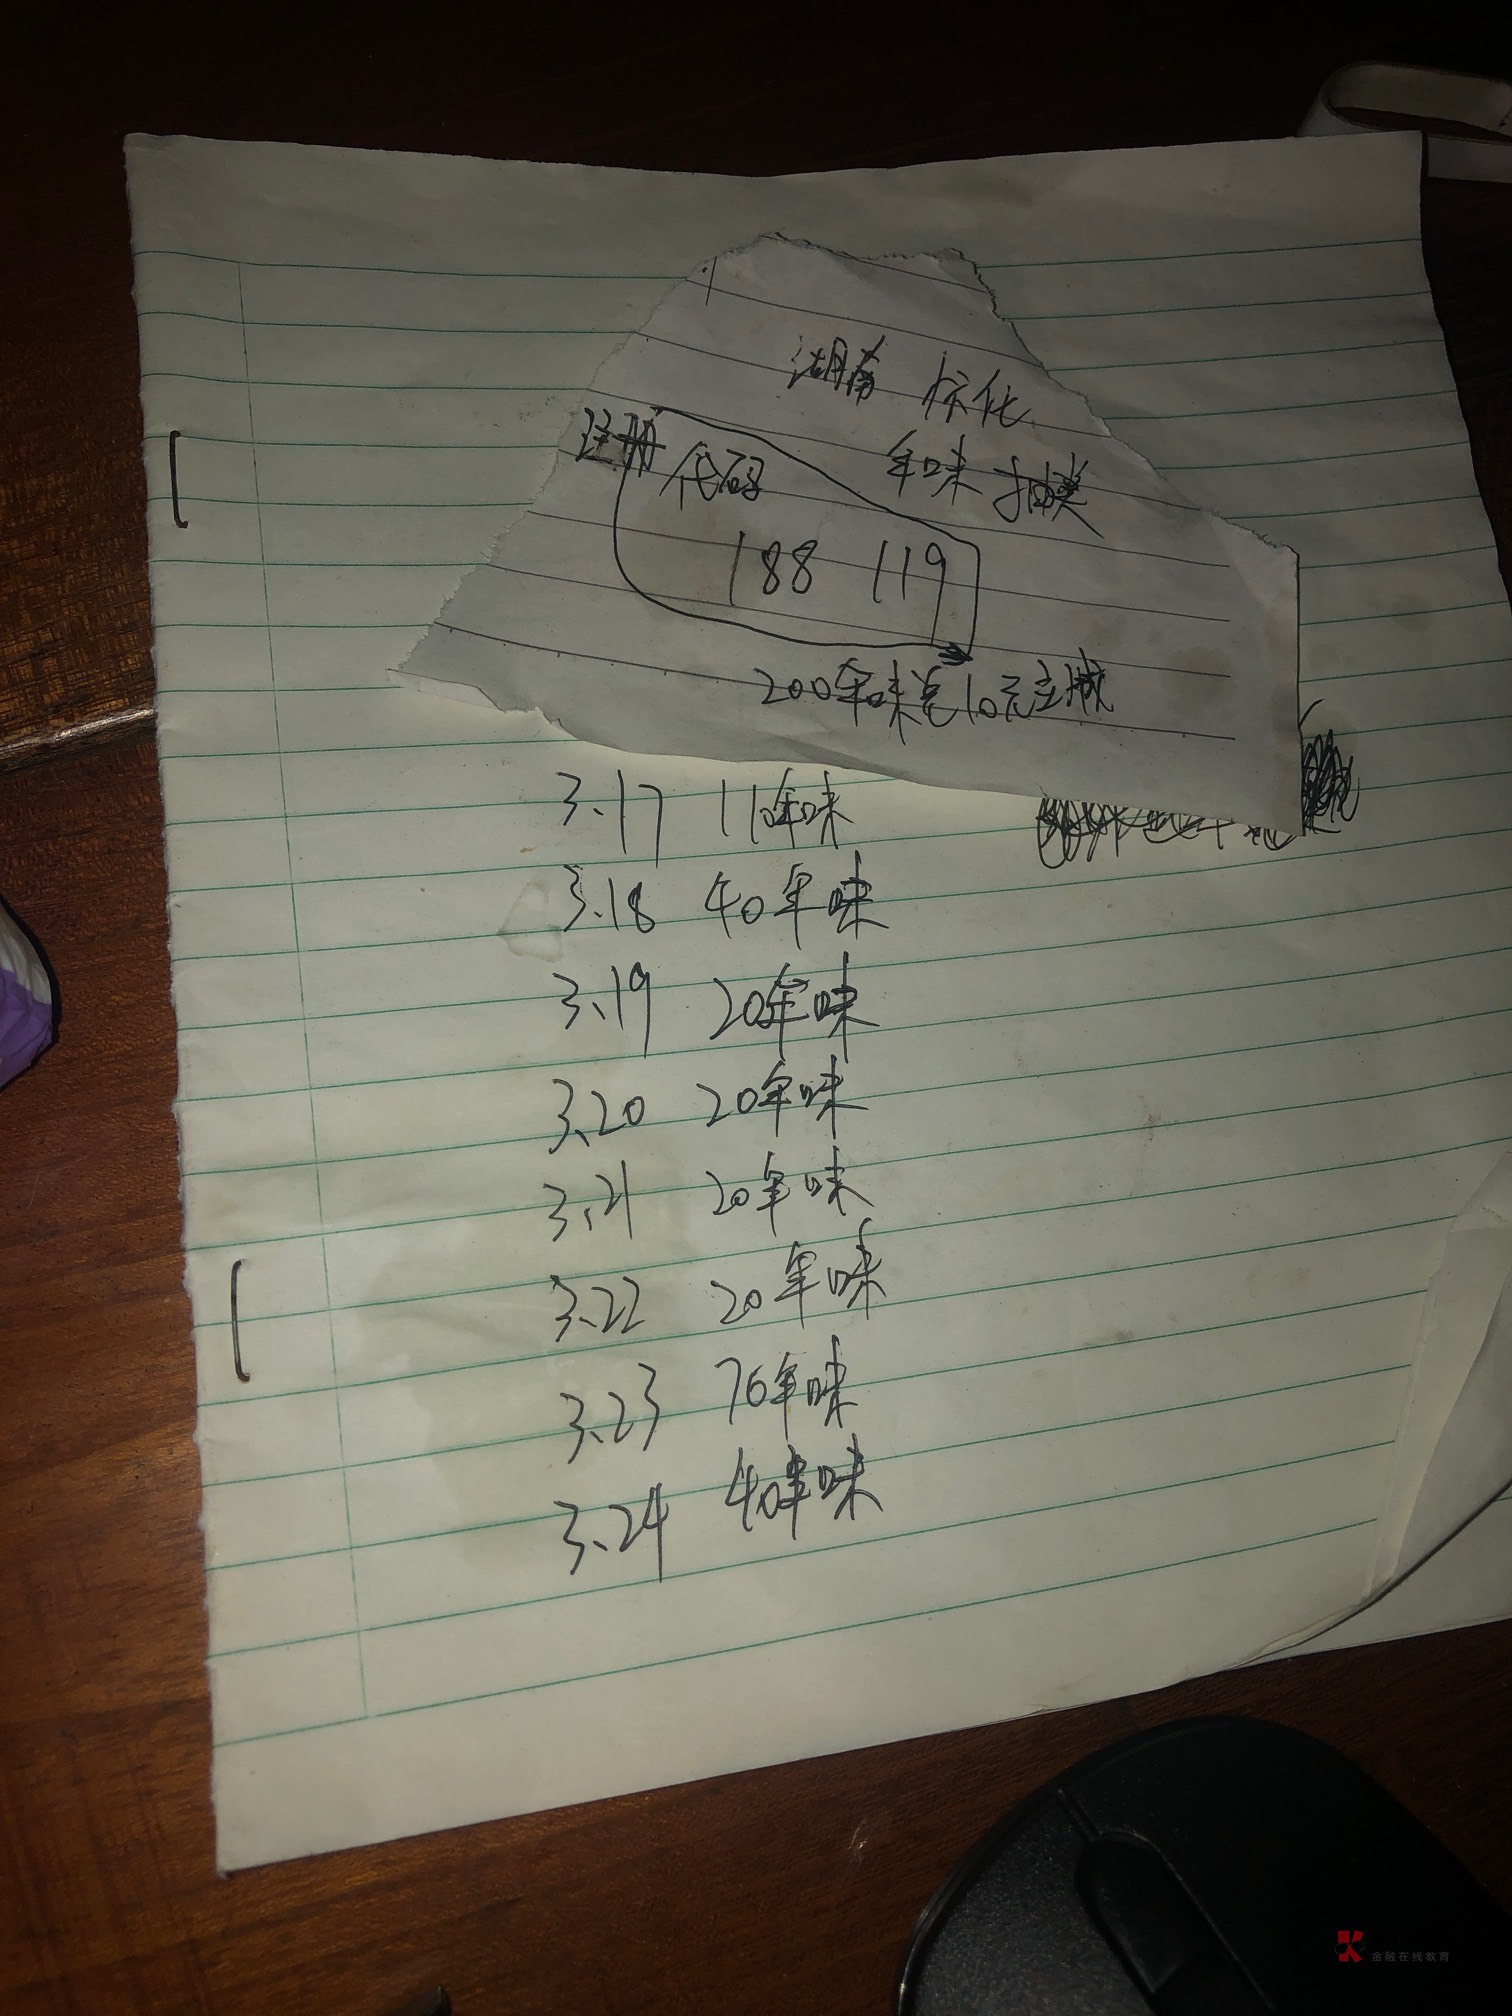 湖南 标化
注册代码
年味 抽奖
188 119
200年味兑10元立减
3.17 110年味
3.18 40年味
3.19 20年味
3.20 20年味
3.21 20年味
3.22 20年味
3.23 76年味
3.24 40年味
金融在线教育